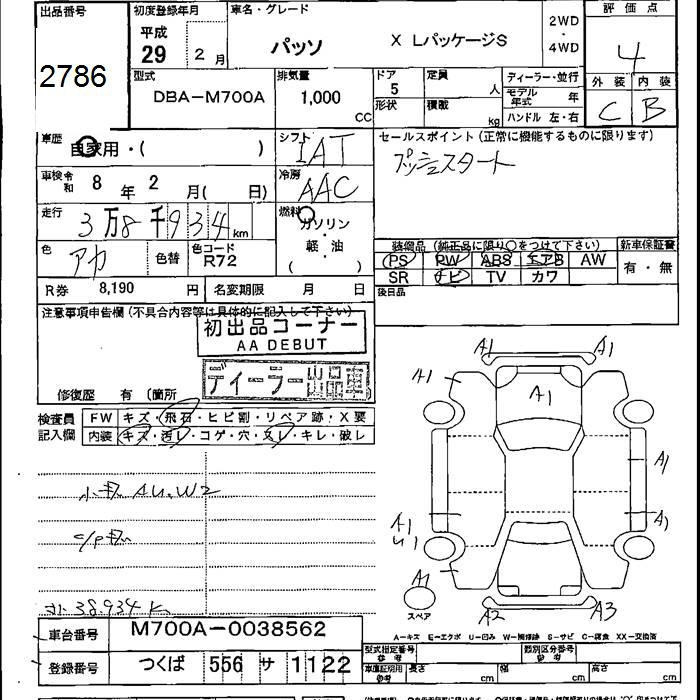 出品番号
2786
初度登録年月
平成
29 2月
車名・グレード
パッソ X LパッケージS
2WD
・
4WD
評価点
4
型式
DBA-M700A
排気量
1,000
CC
ドア
5
形状
定員
人
積載
kg
ディーラー・並行
モデル年式 年
ハンドル 左・右
外装 内装
C B
車歴
自家用・( )
シフト
IAT
セールスポイント(正常に機能するものに限ります)
プッシュスタート
車検 令和 8年 2月( 日)
冷房
AAC
走行
3万8千934 km
燃料
ガソリン
・
軽・油
( )
色
アカ
色替
色コード
R72
装備品(純正品に限り○をつけて下さい)
PS PW ABS エアB AW
SR ナビ TV カワ
新車保証書
有・無
R券 8,190 円
名変期限 月 日
後日品
注意事項申告欄(不具合内容等は具体的に記入して下さい)
初出品コーナー
AA DEBUT
ディーラー出品車
修復歴 有 (箇所
検査員
記入欄
FW キズ・飛石・ヒビ割・リペア跡・X要
内装 キズ・汚レ・コゲ・穴・ヌレ・キレ・破レ
AU.W2
38.934K
A1
A1
A1
A1
A1
A1
U1
A1
A1
A2
A3
スペア
A-キズ E-エクボ U-凹み W-補修跡 S-サビ C-腐食 XX-交換済
車台番号 M700A-0038562
登録番号 つくば 556 サ 1122
型式指定番号
参考
類別区分番号
参考
車庫証明用
参考
長さ cm
幅 cm
高さ cm